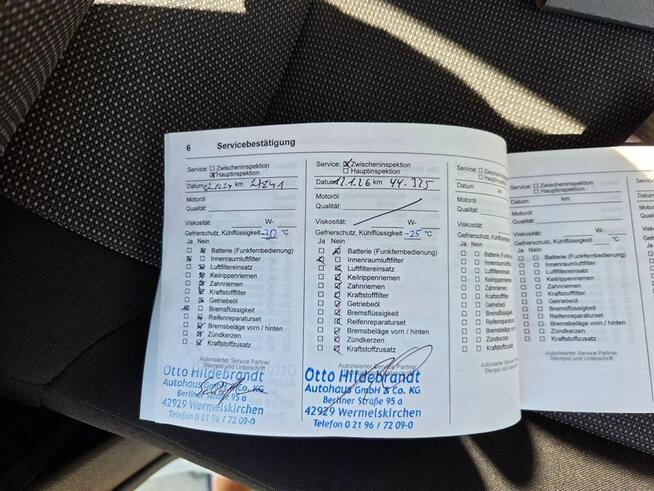 6 Servicebestätigung
Service: Zwischeninspektion
Hauptinspektion
Datum km 27841
Motoröl
Qualität:
Viskosität: W-
Gefrierschutz, Kühlflüssigkeit -30 °C
Ja Nein
Batterie (Funkfernbedienung)
Innenraumluftfilter
Luftfiltereinsatz
Keilrippenriemen
Zahnriemen
Kraftstofffilter
Getriebeöl
Bremsflüssigkeit
Reifenreparaturset
Bremsbeläge vorn / hinten
Zündkerzen
Kraftstoffzusatz
Autorisierter Service Partner
Stempel und Unterschrift
Otto Hildebrandt
Autohaus GmbH & Co. KG
Berliner Straße 95 a
42929 Wermelskirchen
Telefon 0 21 96 / 72 09-0
Service: Zwischeninspektion
Hauptinspektion
Datum 12.1.26 km 44-325
Motoröl
Qualität:
Viskosität: W-
Gefrierschutz, Kühlflüssigkeit -25 °C
Ja Nein
Batterie (Funkfernbedienung)
Innenraumluftfilter
Luftfiltereinsatz
Keilrippenriemen
Zahnriemen
Kraftstofffilter
Getriebeöl
Bremsflüssigkeit
Reifenreparaturset
Bremsbeläge vorn / hinten
Zündkerzen
Kraftstoffzusatz
Autorisierter Service Partner
Stempel und Unterschrift
Otto Hildebrandt
Autohaus GmbH & Co. KG
Berliner Straße 95 a
42929 Wermelskirchen
Telefon 0 21 96 / 72 09-0
Service: Zwischeninspektion
Hauptinspektion
Datum
Motoröl
Qualität:
Viskosität:
Gefrierschutz, Kühlflüssigkeit
Ja Nein
Batterie
Innenraumluftfilter
Luftfiltereinsatz
Keilrippenriemen
Zahnriemen
Kraftstofffilter
Getriebeöl
Bremsflüssigkeit
Reifenreparaturset
Bremsbeläge vorn
Zündkerzen
Kraftstoffzusatz
Autorisierter Service
Stempel und Unterschrift
Service: Zwischeninspektion
Hauptinspektion
Datum km
Motoröl
Qualität:
Viskosität: W-
Gefrierschutz, Kühlflüssigkeit °C
Ja Nein
Batterie (Funkfernbedienung)
Innenraumluftfilter
Luftfiltereinsatz
Keilrippenriemen
Zahnriemen
Kraftstofffilter
Getriebeöl
Bremsflüssigkeit
Reifenreparaturset
Bremsbeläge vorn / hinten
Zündkerzen
Kraftstoffzusatz
Autorisierter Service Partner
Stempel und Unterschrift